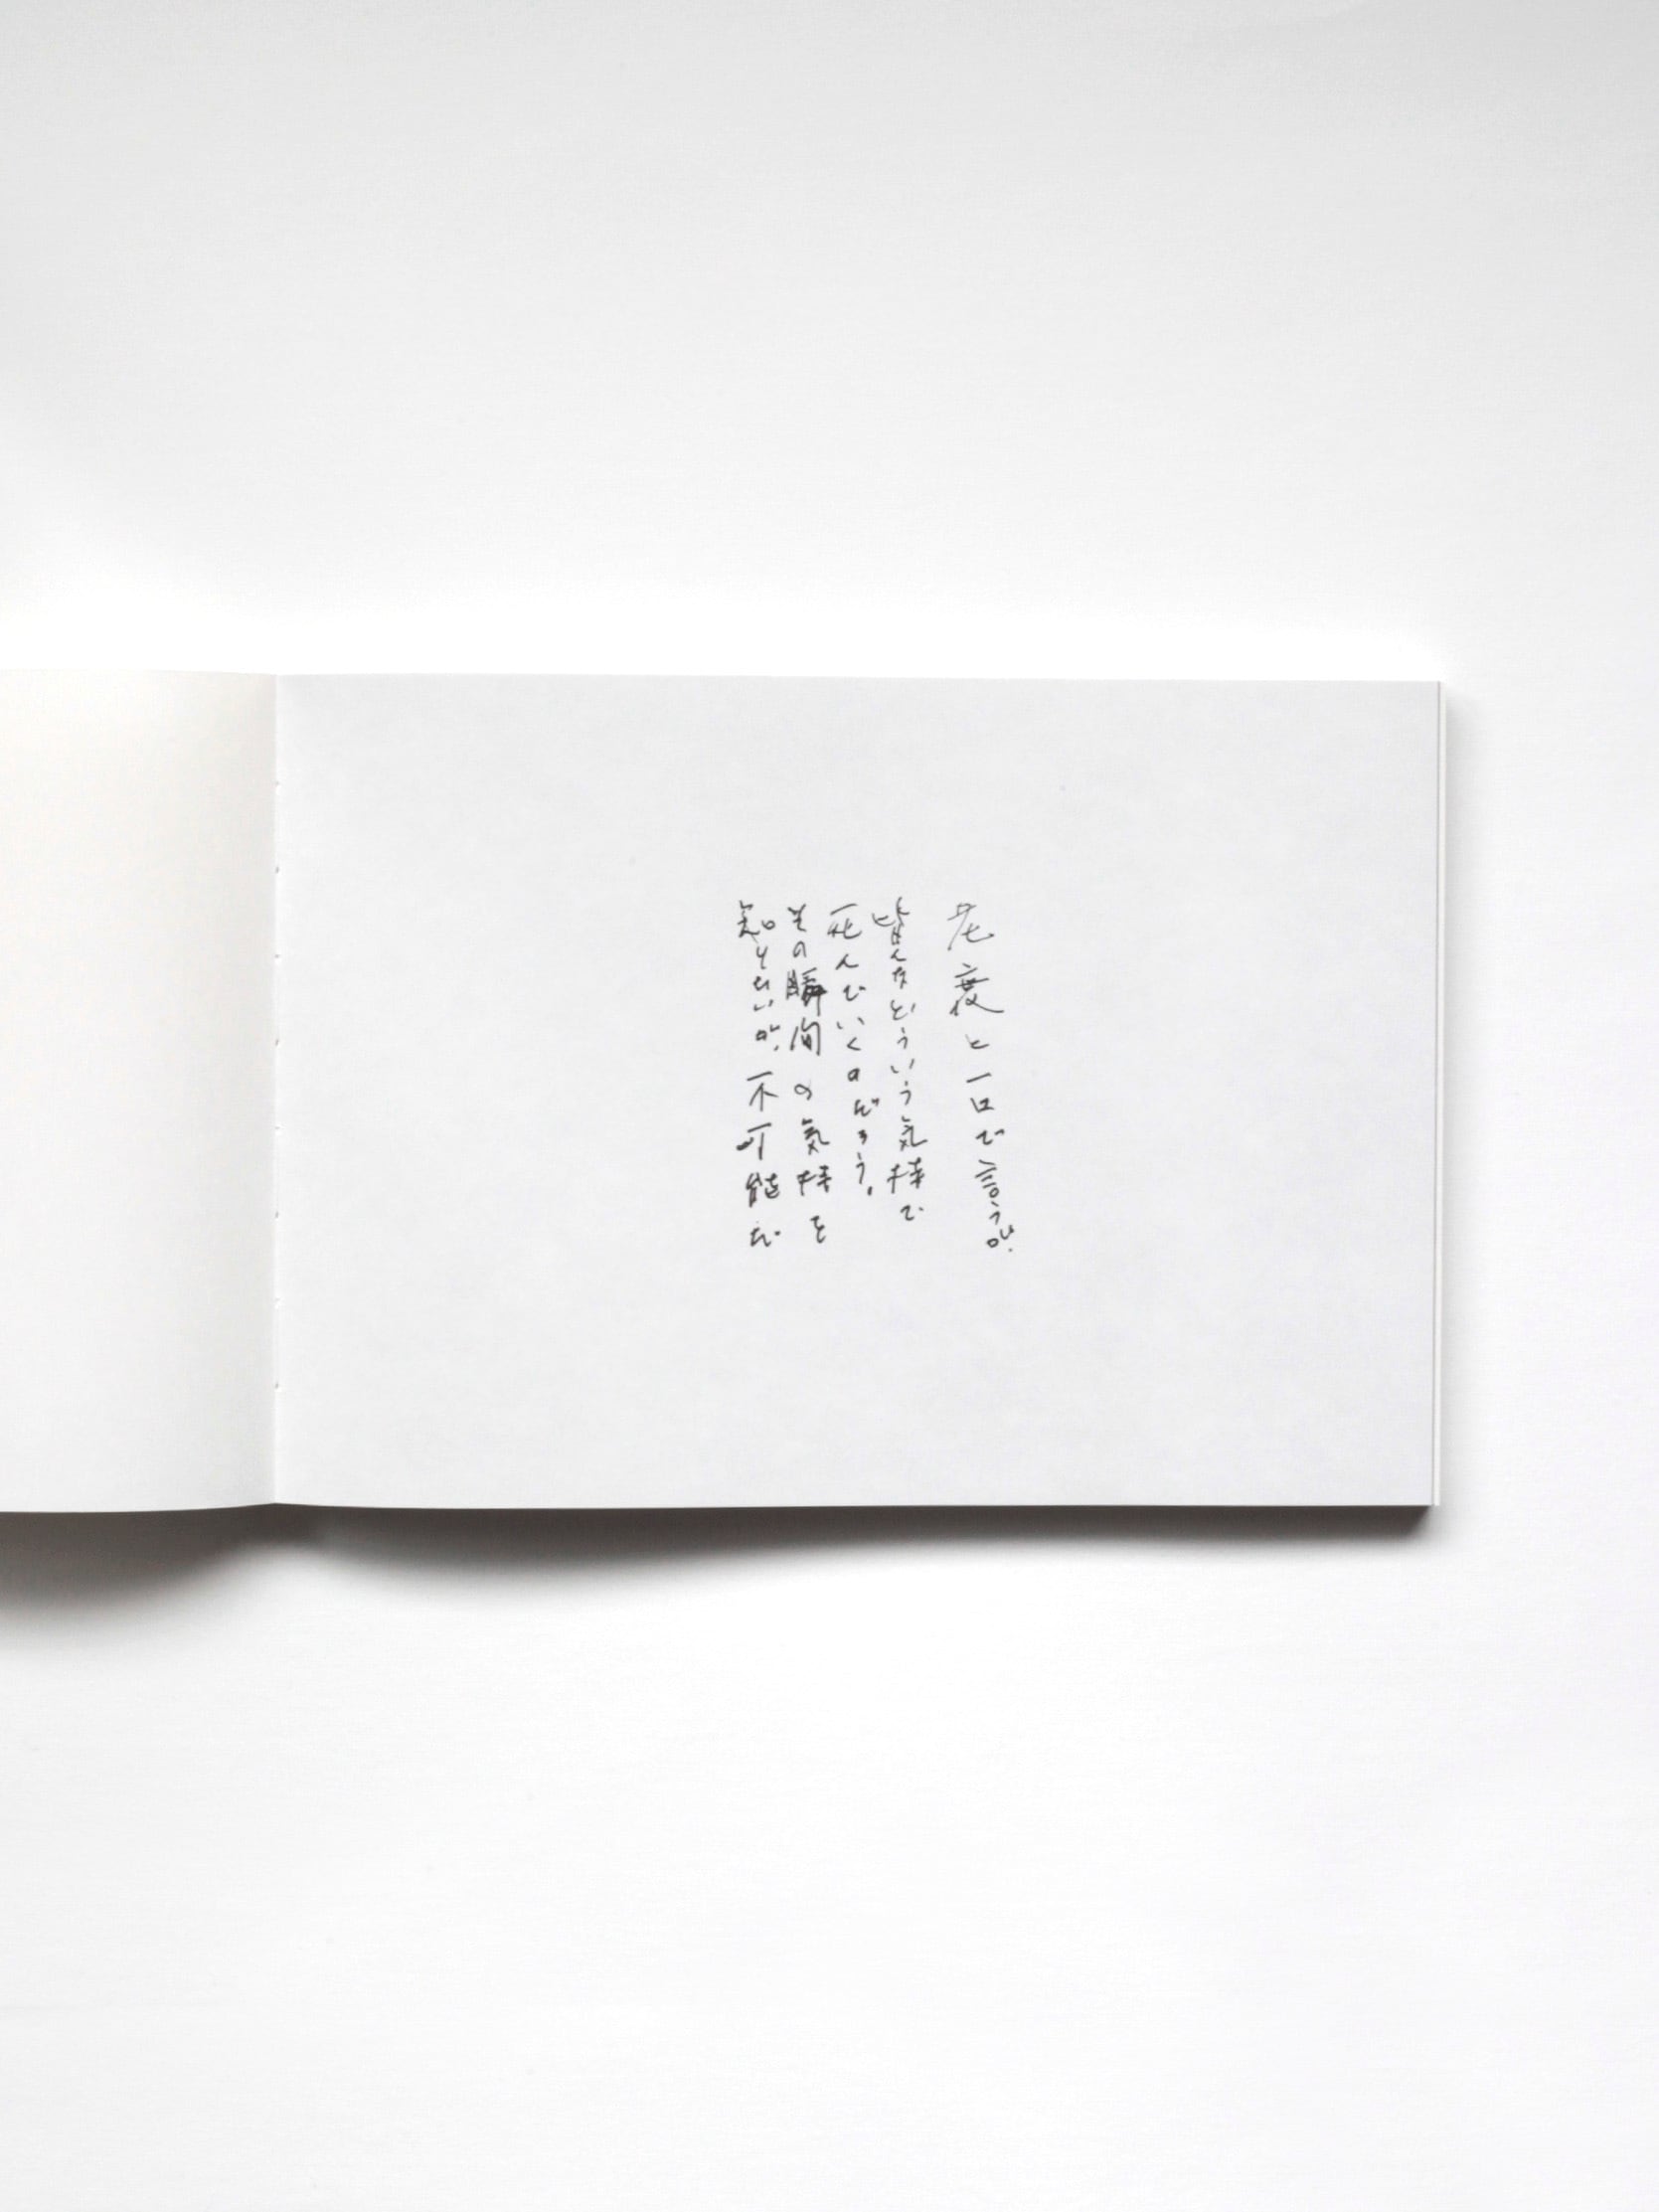 老衰と一口で言うが、
皆んなどういう気持で
死んでいくのだろう。
その瞬間の気持を
知りたいが、不可能だ